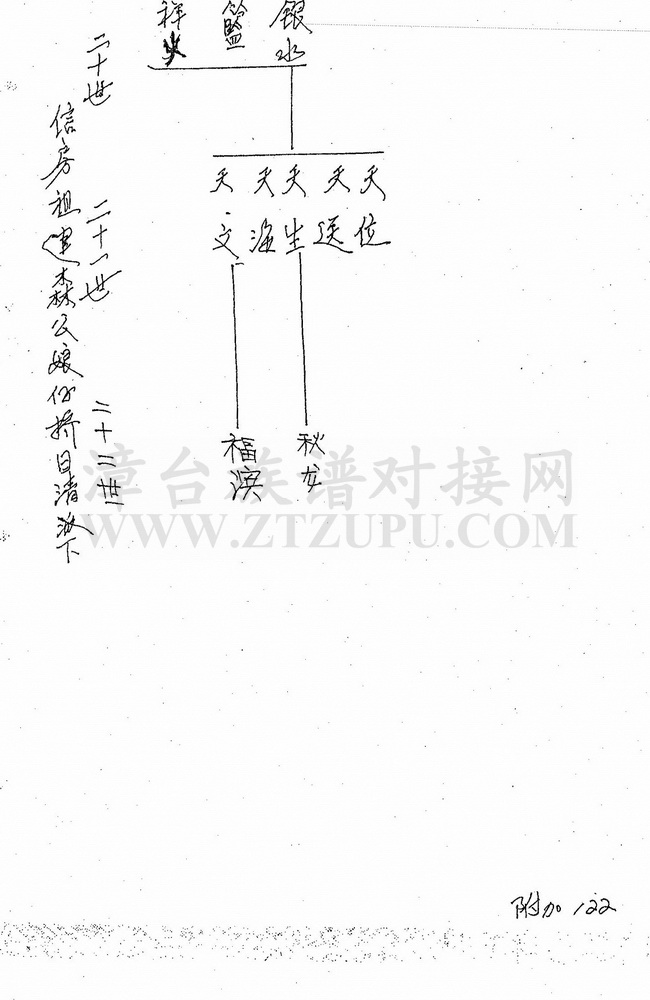 銀水
籃
祥
天位
天送
天生
天海
天文
秋龙
福滨
二十世
二十一世
二十二世
信房祖建森公娘仔
日清派下
漳台族谱对接网
WWW.ZTZUPU.COM
附加122